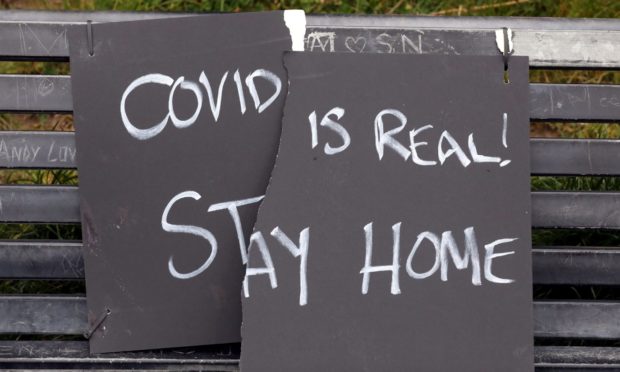 M ♡ S N
COVID IS REAL!
STAY HOME
ANDY LOV